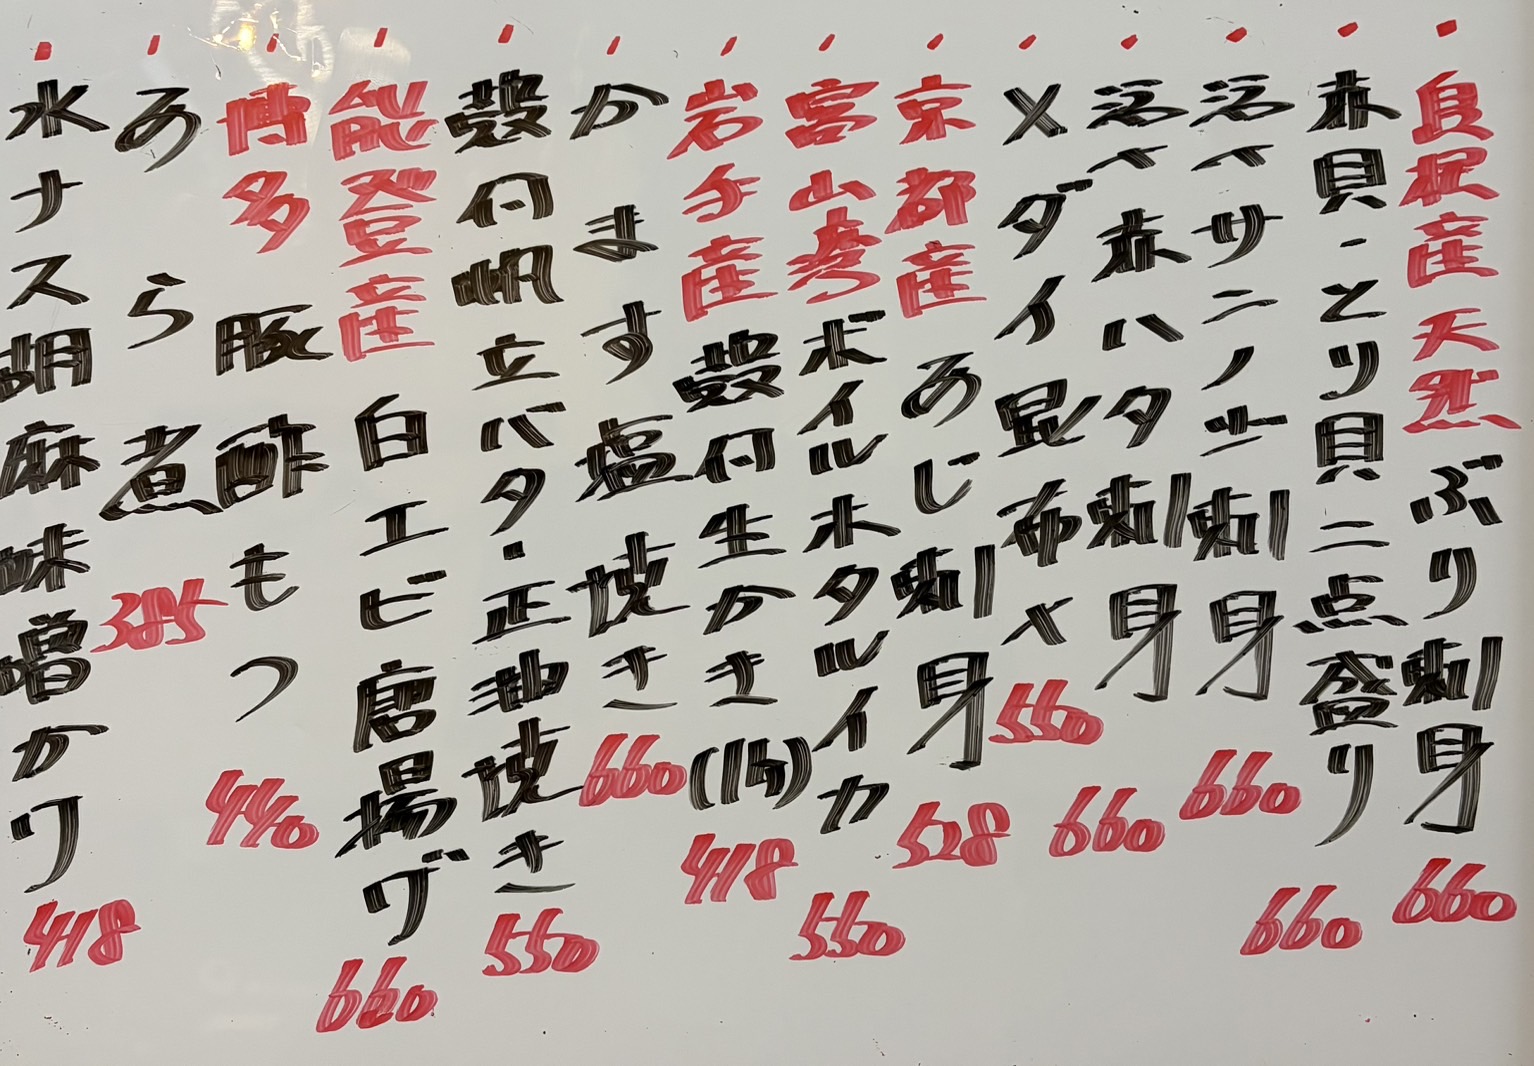 島根産天然ぶり刺身 660
赤貝・とり貝二点盛り 660
活〆 刺身 660
活〆赤ハタ刺身 660
メダイ昆布〆 550
京都産あじ刺身 528
富山産ボイルホタルイカ 550
岩手産殻付生かき 418
かます塩焼き 660
殻付帆立バタ・正油焼き 550
能登産白エビ唐揚げ 660
博多豚酢もつ 440
あら煮 385
水ナス胡麻味噌かけ 418